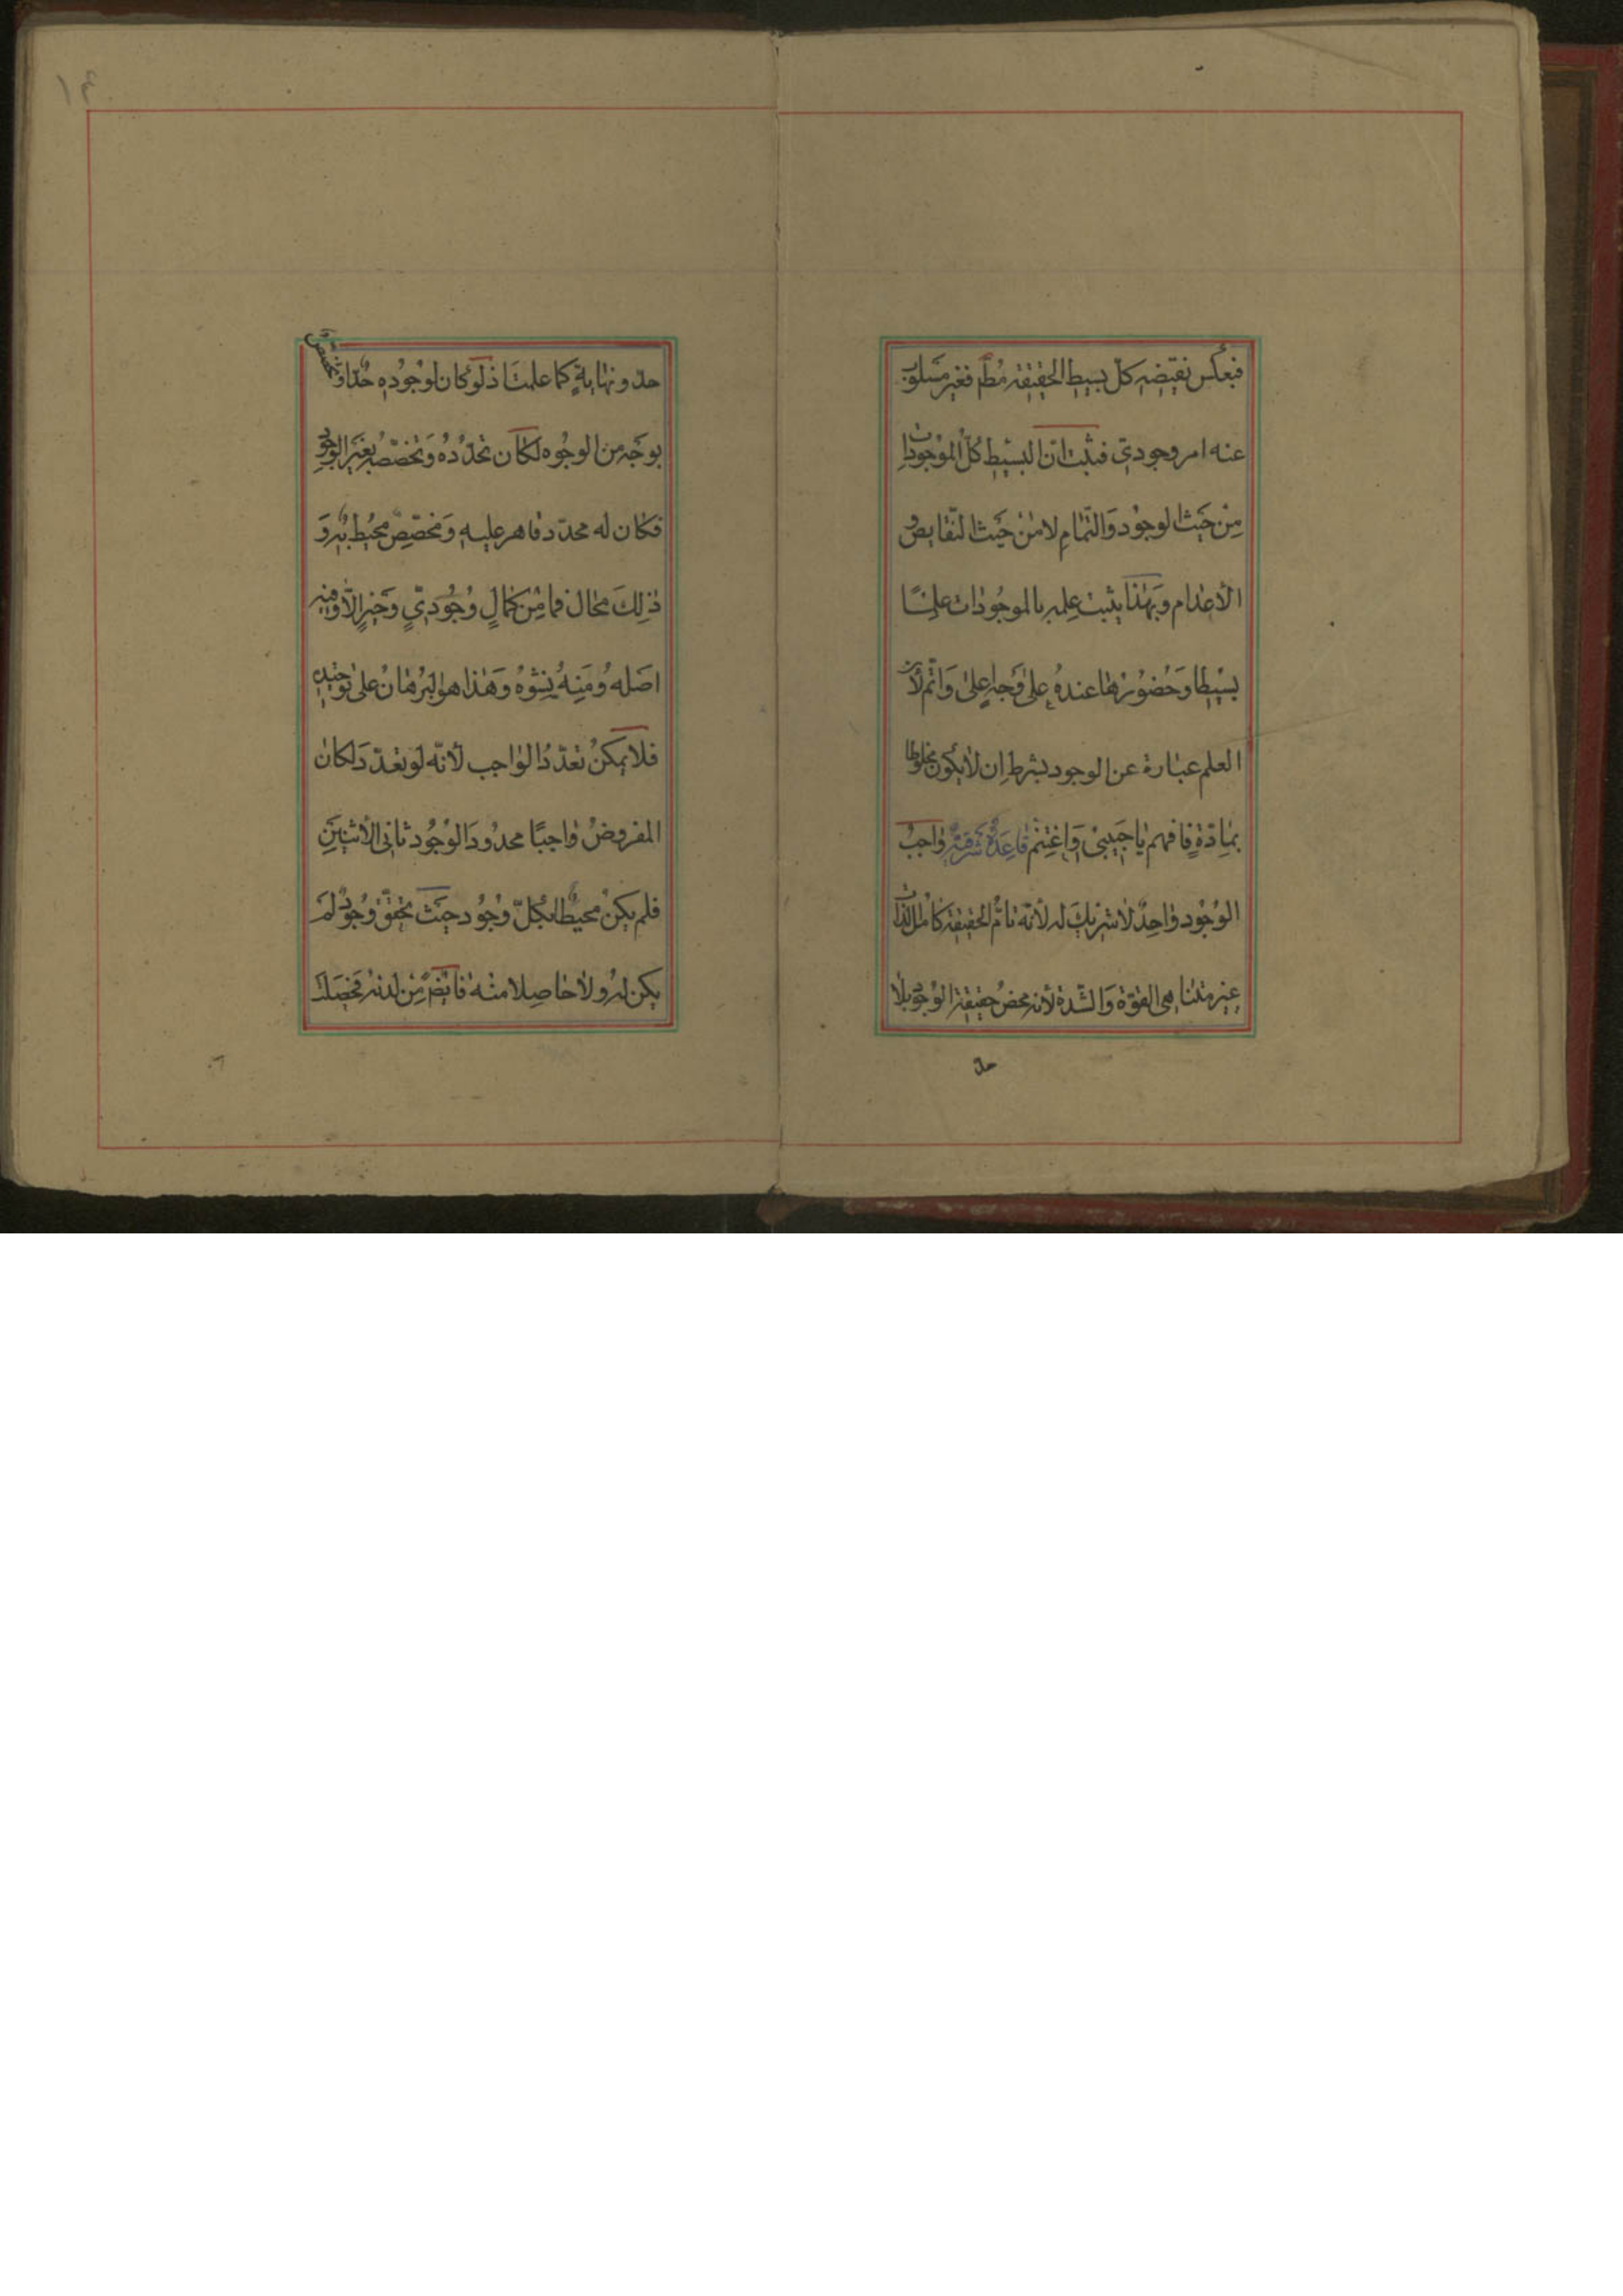 فبعكس نقيضه كلّ بسيط الحقيقة مُطّم فغير مسلوب
عنه امر وجوديّ فثبت انّ البسيط كُلّ الموْجودات
مِنْ حَيْث الوجوْد وَالتّمامِ لا مِنْ حَيث النّقايص و
الأعدام وَبِهٰذا يثبت عِلمه بالموجُودات علمًا
بسيْطا وَحُضُورها عندهُ علىٰ وَجهٍ اعلىٰ وَاتّم لأن
العلم عبارة عن الوجود بشرط ان لا يكون مخلوطا
بمادّةٍ فافهم يا حَبيبيْ وَاغتنم قاعدةٌ مشرقيّةٌ واجبُ
الوُجوْد واحِدٌ لا شريكَ له لأنّه تامُّ الحقيقة كامل الذات
غير متناهى القوّة وَالشّدة لأنه محضُ حقيقة الوُجود بلا
حدّ
١٤
حدّ ونهايةٍ كما علمتَ اذ لوْ كان لوُجوُده حدٌّ او تخصّصٌ
بوجْه من الوجُوه لكان تحدّدُه وَتخصّصه بغيْر الوجود
فكان له محدّد قاهر عليه وَمخصّصٌ محيُط به وَ
ذٰلِكَ محٰال فما مِنْ كمٰالٍ وُجُوديّ وَخيرٍ الّا وَفيه
اصله وُمنِهُ ينشوهُ وَهٰذا هوُ البرْهٰانُ على توحيْده
فلا يمكنُ تعدّدُ الوٰاجب لأنّه لو تعدّد لكان
المفروضُ وٰاجبًا محدُودَ الوُجُود ثانى الأثنيْنِ
فلم يكنْ محيطًا بكلّ وُجُود حيَث تحقّق وُجوْدٌ لمْ
يكن لهُ ولا حٰاصِلا منهْ فائضًا مِنْ لدنه فحصَلَتْ